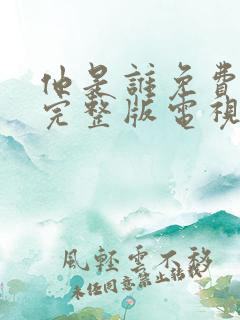 他是誰免費
完整版電視
風輕雲不移
未经同意禁止转载